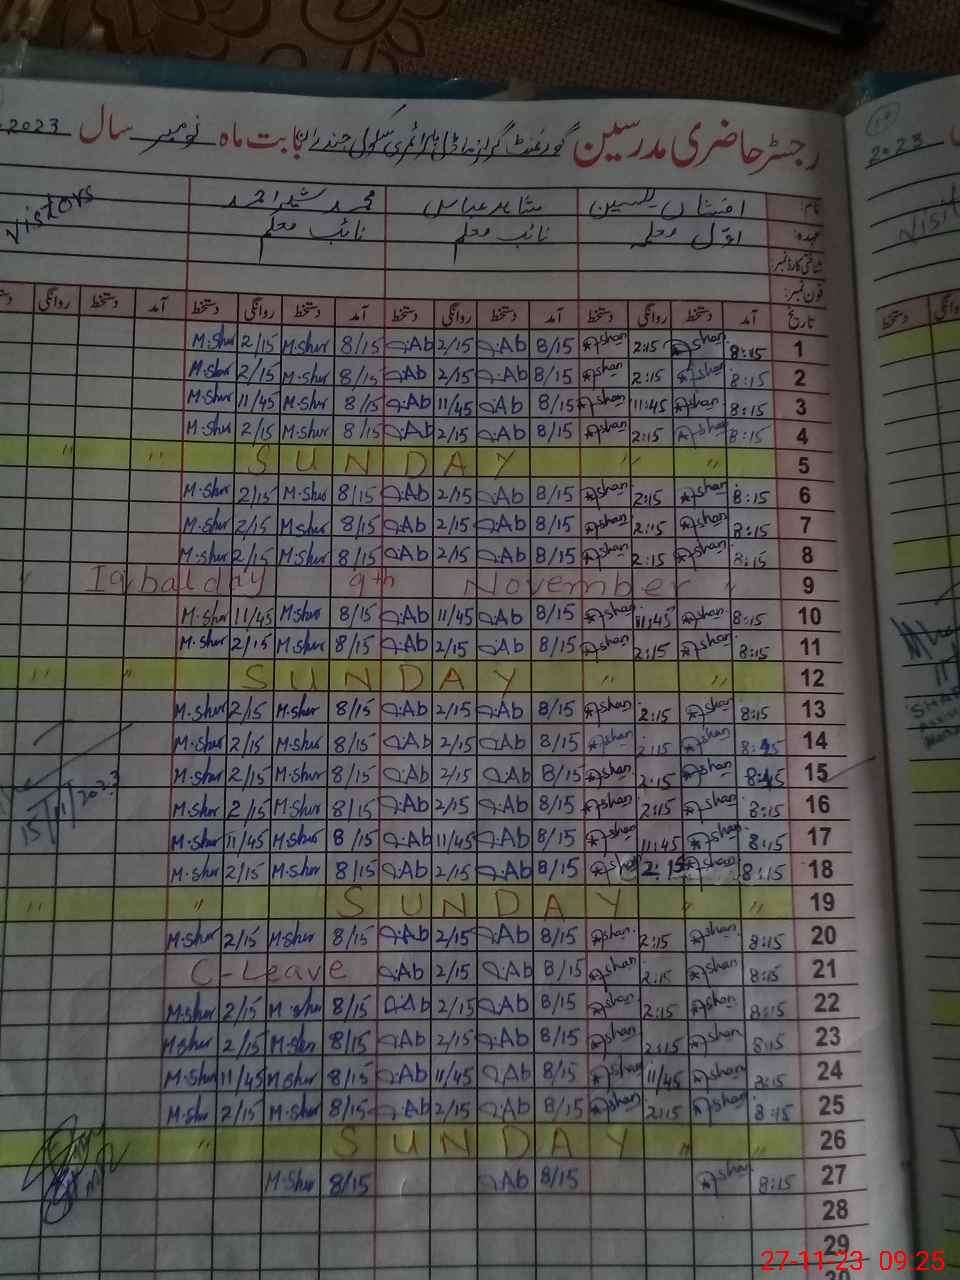 رجسٹر حاضری مدرسین گورنمنٹ گرلز ماڈل پرائمری سکول بابت ماہ نومبر سال 2023
نام: افشاں یاسمین شاہد عباس محمد شیر احمد Vistors
عہدہ: اول معلم نائب معلم نائب معلم
شناختی کارڈ نمبر:
فون نمبر:
تاریخ آمد دستخط روانگی دستخط آمد دستخط روانگی دستخط آمد دستخط روانگی دستخط آمد دستخط روانگی
M.Sher 2/15 M.Sher 8/15 Ab 2/15 Ab 8/15 Afshan 2:15 Afshan 8:15 1
M.Sher 2/15 M.Sher 8/15 Ab 2/15 Ab 8/15 Afshan 2:15 Afshan 8:15 2
M.Sher 11/45 M.Sher 8/15 Ab 11/45 Ab 8/15 Afshan 11:45 Afshan 8:15 3
M.Sher 2/15 M.Sher 8/15 Ab 2/15 Ab 8/15 Afshan 2:15 Afshan 8:15 4
" " SUNDAY " " 5
M.Sher 2/15 M.Sher 8/15 Ab 2/15 Ab 8/15 Afshan 2:15 Afshan 8:15 6
M.Sher 2/15 M.Sher 8/15 Ab 2/15 Ab 8/15 Afshan 2:15 Afshan 8:15 7
M.Sher 2/15 M.Sher 8/15 Ab 2/15 Ab 8/15 Afshan 2:15 Afshan 8:15 8
" Iqbal day 9th November " 9
M.Sher 11/45 M.Sher 8/15 Ab 11/45 Ab 8/15 Afshan 11:45 Afshan 8:15 10
M.Sher 2/15 M.Sher 8/15 Ab 2/15 Ab 8/15 Afshan 2:15 Afshan 8:15 11
" " SUNDAY " " 12
M.Sher 2/15 M.Sher 8/15 Ab 2/15 Ab 8/15 Afshan 2:15 Afshan 8:15 13
M.Sher 2/15 M.Sher 8/15 Ab 2/15 Ab 8/15 Afshan 2:15 Afshan 14
15/11/2023 M.Sher 2/15 M.Sher 8/15 Ab 2/15 Ab 8/15 Afshan 2:15 Afshan 15
M.Sher 2/15 M.Sher 8/15 Ab 2/15 Ab 8/15 Afshan 2:15 Afshan 8:15 16
M.Sher 11/45 M.Sher 8/15 Ab 11/45 Ab 8/15 Afshan 11:45 Afshan 8:15 17
M.Sher 2/15 M.Sher 8/15 Ab 2/15 Ab 8/15 Afshan 2:15 Afshan 8:15 18
" " SUNDAY " " 19
M.Sher 2/15 M.Sher 8/15 Ab 2/15 Ab 8/15 Afshan 2:15 Afshan 8:15 20
C-Leave Ab 2/15 Ab 8/15 Afshan 2:15 Afshan 8:15 21
M.Sher 2/15 M.Sher 8/15 Ab 2/15 Ab 8/15 Afshan 2:15 Afshan 8:15 22
M.Sher 2/15 M.Sher 8/15 Ab 2/15 Ab 8/15 Afshan 2:15 Afshan 8:15 23
M.Sher 11/45 M.Sher 8/15 Ab 11/45 Ab 8/15 Afshan 11/45 Afshan 8:15 24
M.Sher 2/15 M.Sher 8/15 Ab 2/15 Ab 8/15 Afshan 2:15 Afshan 8:15 25
" SUNDAY " " 26
M.Sher 8/15 Ab 8/15 Afshan 8:15 27
28
29
2023
27-11-23 09:25